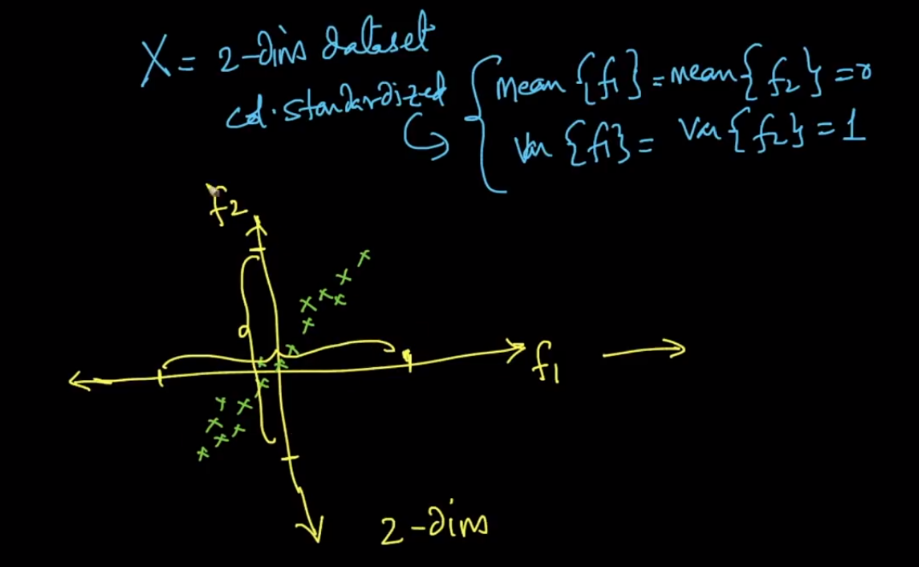 X = 2-dim dataset
col. standardized { mean {f1} = mean {f2} = 0
Var {f1} = Var {f2} = 1
f2
f1
2-dim